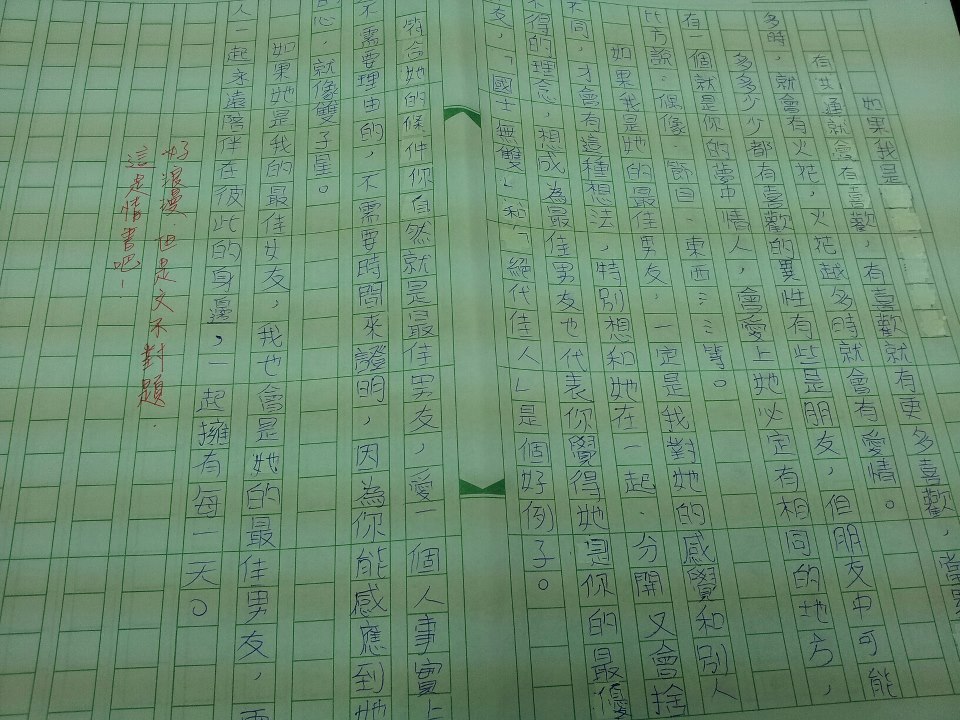 如果我是
有喜歡就有更多喜歡，當累
多時，就會有火花，火花越多時就會有愛情。
有交通就會有喜歡，
多多少少都有喜歡的異性有些是朋友，但朋友中可能
有一個就是你的夢中情人，會愛上她必定有相同的地方，
比方說：偶像．節目．東西……等。
如果我是她的最佳男友．一定是我對她的感覺和別人
不同，才會有這種想法，特別想和她在一起．分開又會捨
不得的理念，想成為最佳男友也代表你覺得她是你的最優
友，「國士無雙」和「絕代佳人」是個好例子。
符合她的條件你自然就是最佳男友，愛一個人事實上
不需要理由的，不需要時間來證明，因為你能感應到她
的心，就像雙子星。
如果她是我的最佳女友，我也會是她的最佳男友，
人一起永遠陪伴在彼此的身邊，一起擁有每一天。
好浪漫，但是文不對題．
這是情書吧！